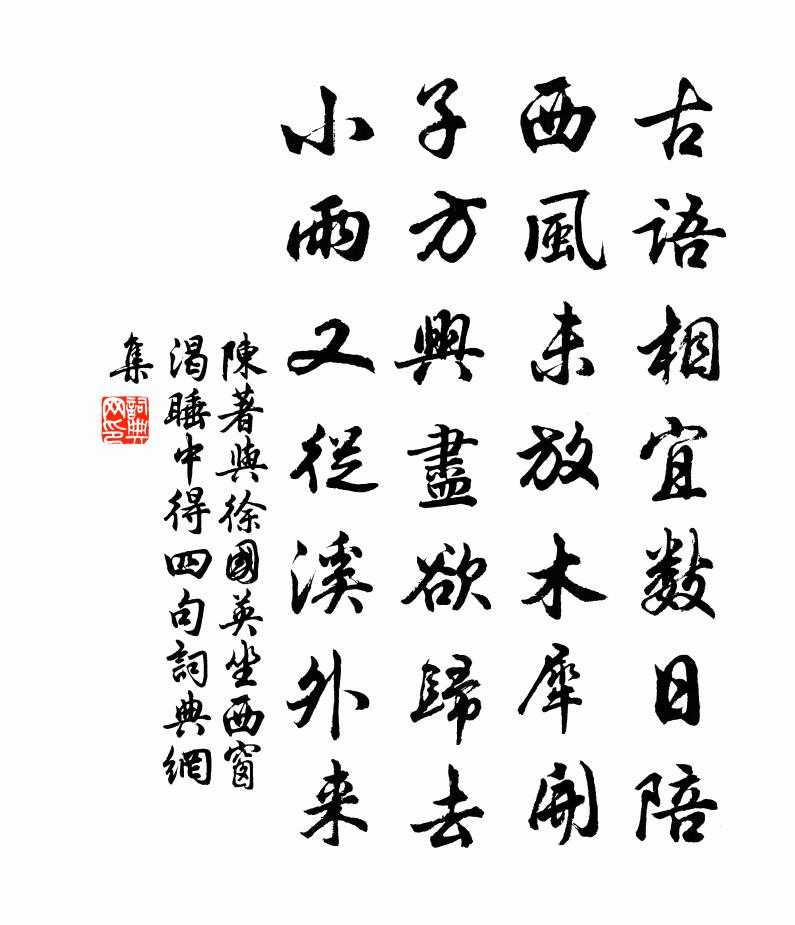 古語相宜數日陪
西風未放木犀開
子方興盡欲歸去
小雨又從溪外来
陳著與徐國英坐西窗
渴睡中得四句詞典網
集
詞典
网印